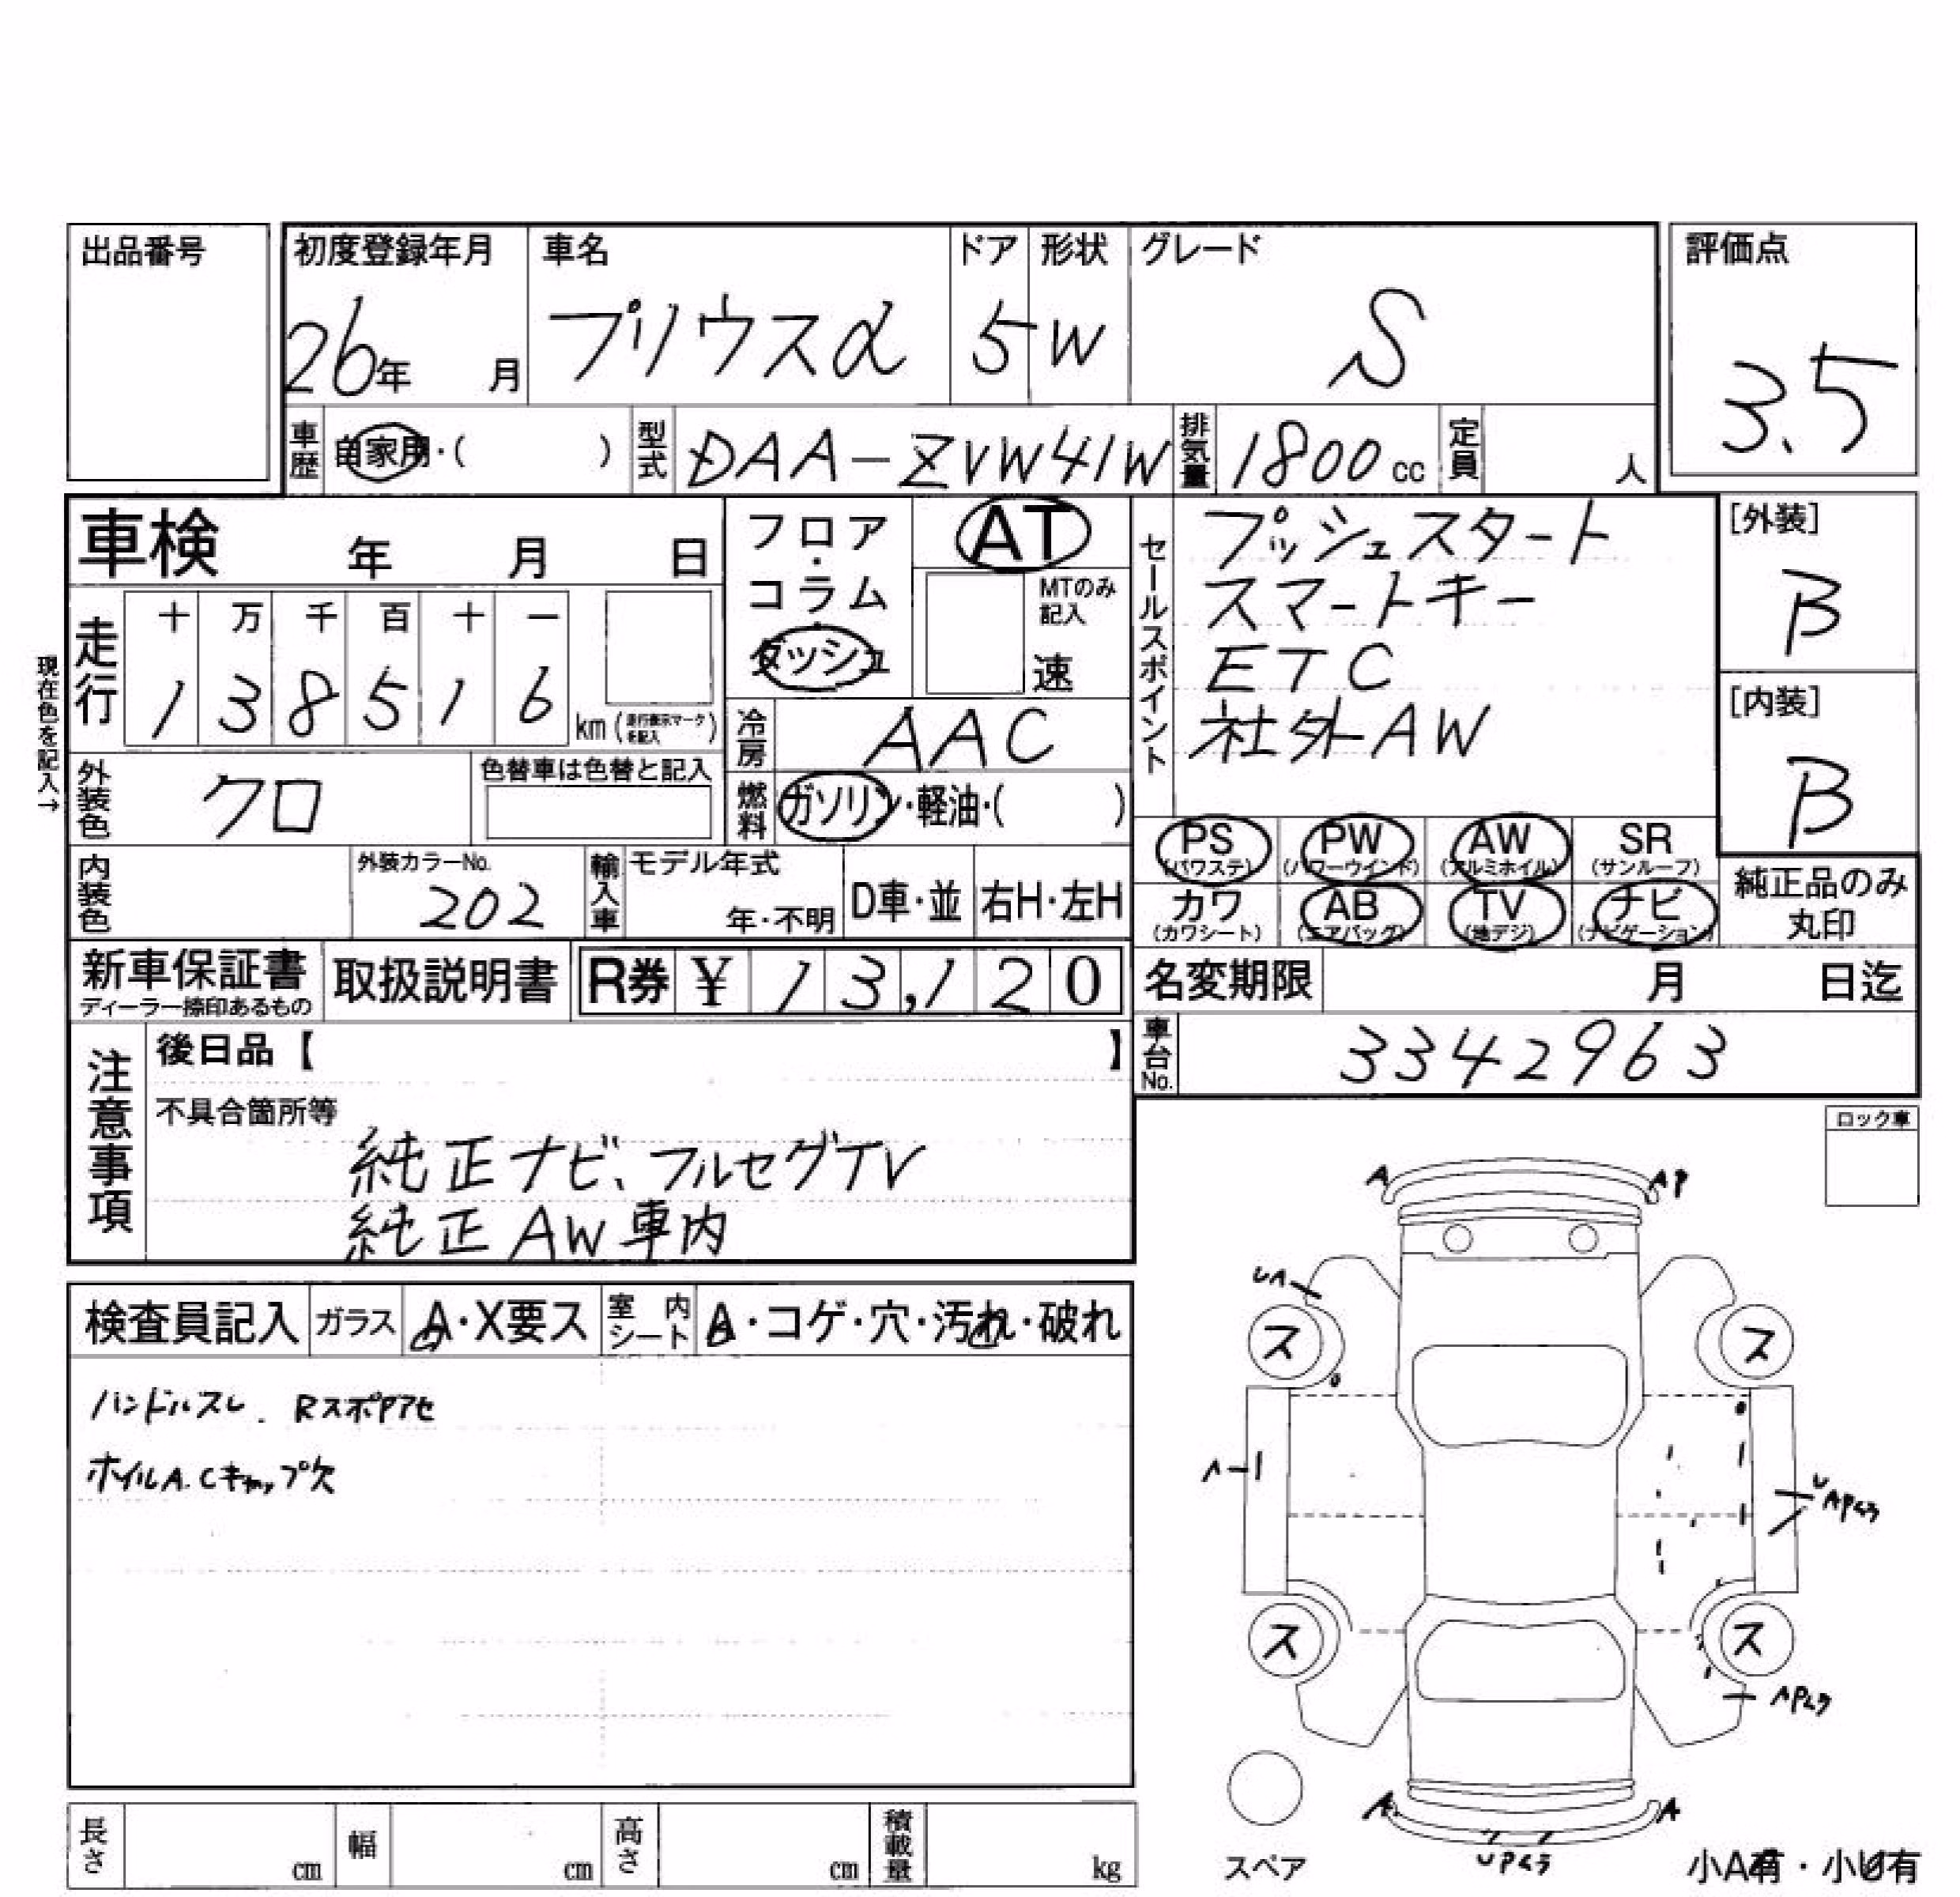 出品番号
初度登録年月 車名 ドア 形状 グレード 評価点
26年 月 プリウスα 5 W S 3.5
車歴 自家用・( ) 型式 DAA-ZVW41W 排気量 1800cc 定員 人
車検 年 月 日
フロア・コラム・ダッシュ
AT
MTのみ記入
速
セールスポイント
プッシュスタート
スマートキー
ETC
社外AW
[外装]
B
[内装]
B
現在色を記入→
走行 十 万 千 百 十 一
1 3 8 5 1 6 km (走行表示マークを記入)
冷房 AAC
外装色 クロ 色替車は色替と記入
燃料 ガソリン・軽油・( )
PS (パワステ) PW (パワーウインド) AW (アルミホイル) SR (サンルーフ)
カワ (カワシート) AB (エアバッグ) TV (地デジ) ナビ (ナビゲーション)
純正品のみ
丸印
内装色 外装カラーNo. 202 輸入車 モデル年式 年・不明 D車・並 右H・左H
新車保証書 取扱説明書 R券 ¥ 13,120
ディーラー捺印あるもの
名変期限 月 日迄
車台No. 3342963
注意事項
後日品【 】
不具合箇所等
純正ナビ、フルセグTV
純正AW車内
ロック車
検査員記入 ガラス A・X要ス 室内シート A・コゲ・穴・汚れ・破れ
ハンドルスレ. Rスポアアセ
ホイルA.Cキャップ欠
A AP
UA
ス ス
ス ス
A A
スペア
小A有・小U有
長さ cm 幅 cm 高さ cm 積載量 kg